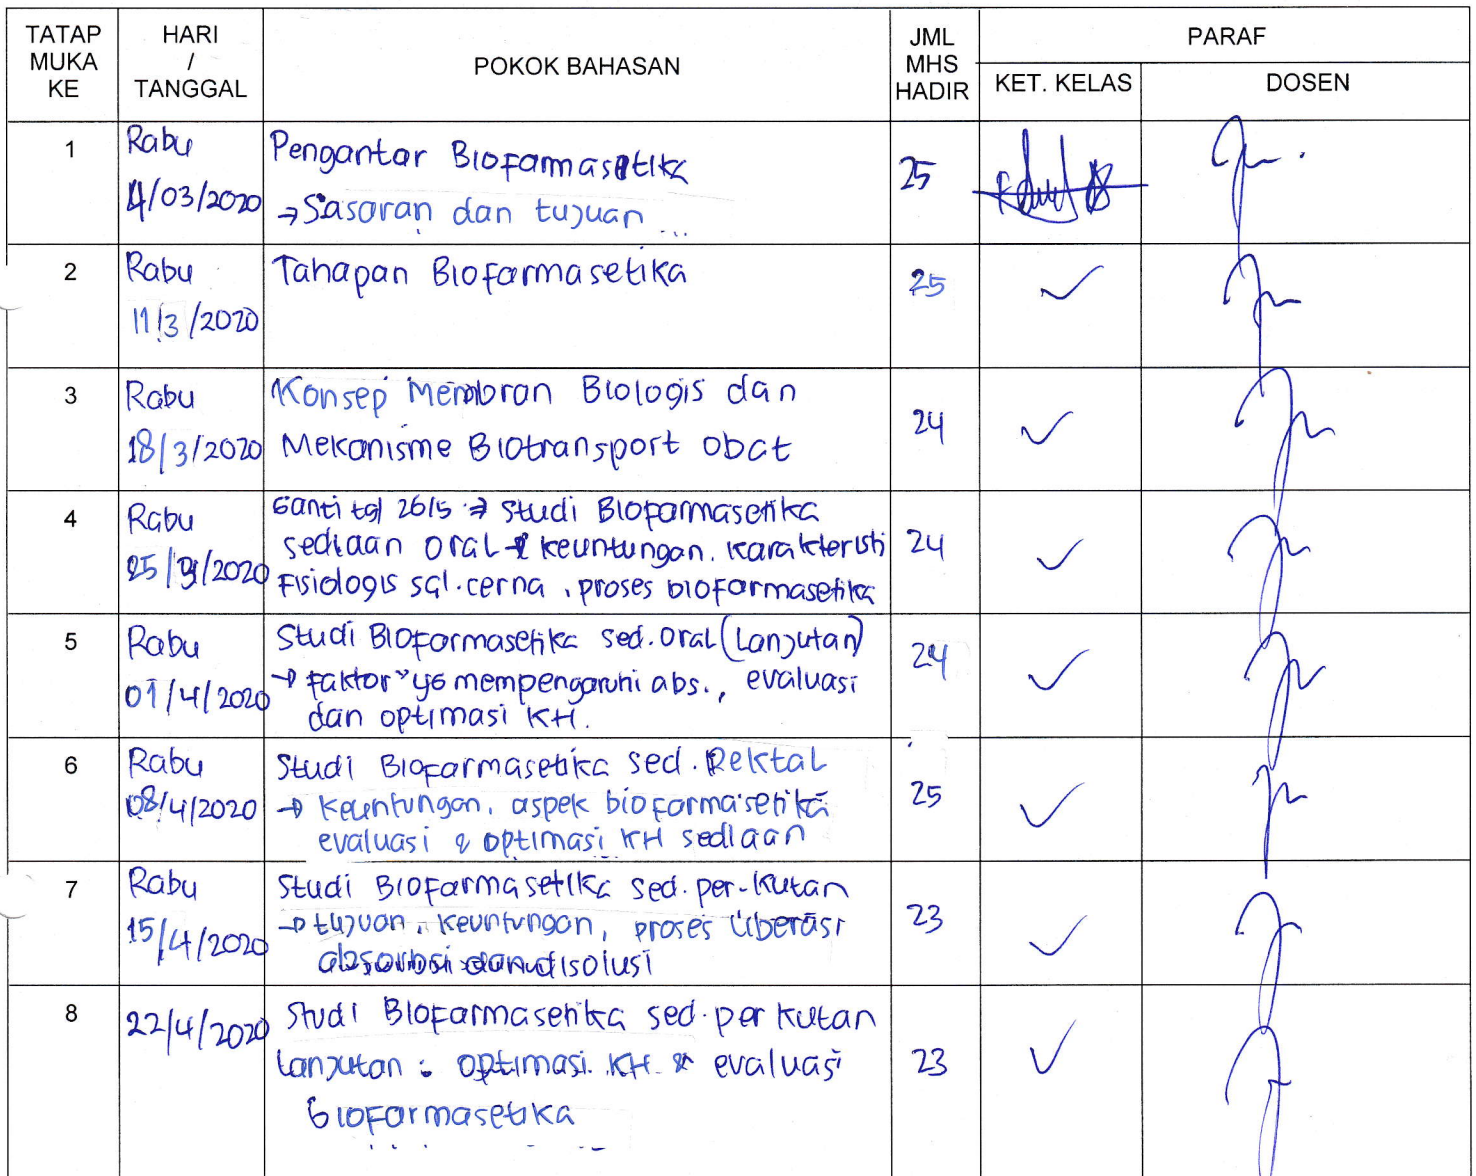 TATAP MUKA KE
HARI / TANGGAL
POKOK BAHASAN
JML MHS HADIR
PARAF
KET. KELAS
DOSEN
1
Rabu
4/03/2020
Pengantar Biofarmasetika
→ Sasaran dan tujuan ...
25
2
Rabu
11/3/2020
Tahapan Biofarmasetika
25
3
Rabu
18/3/2020
Konsep Membran Biologis dan
Mekanisme Biotransport obat
24
4
Rabu
25/3/2020
Ganti tgl 26/5 → Studi Biofarmasetika
sediaan oral → keuntungan, karakteristi
Fisiologis sal.cerna, proses biofarmasetika
24
5
Rabu
01/4/2020
Studi Biofarmasetika sed. oral (Lanjutan)
→ faktor" yg mempengaruhi abs., evaluasi
dan optimasi KH.
24
6
Rabu
08/4/2020
Studi Biofarmasetika sed. Rektal
→ keuntungan, aspek biofarmasetika
evaluasi & optimasi KH sediaan
25
7
Rabu
15/4/2020
Studi Biofarmasetika sed. per-kutan
→ tujuan, keuntungan, proses liberasi
absorbsi dan disolusi
23
8
22/4/2020
Studi Biofarmasetika sed. per kutan
lanjutan : optimasi KH & evaluasi
biofarmasetika
23